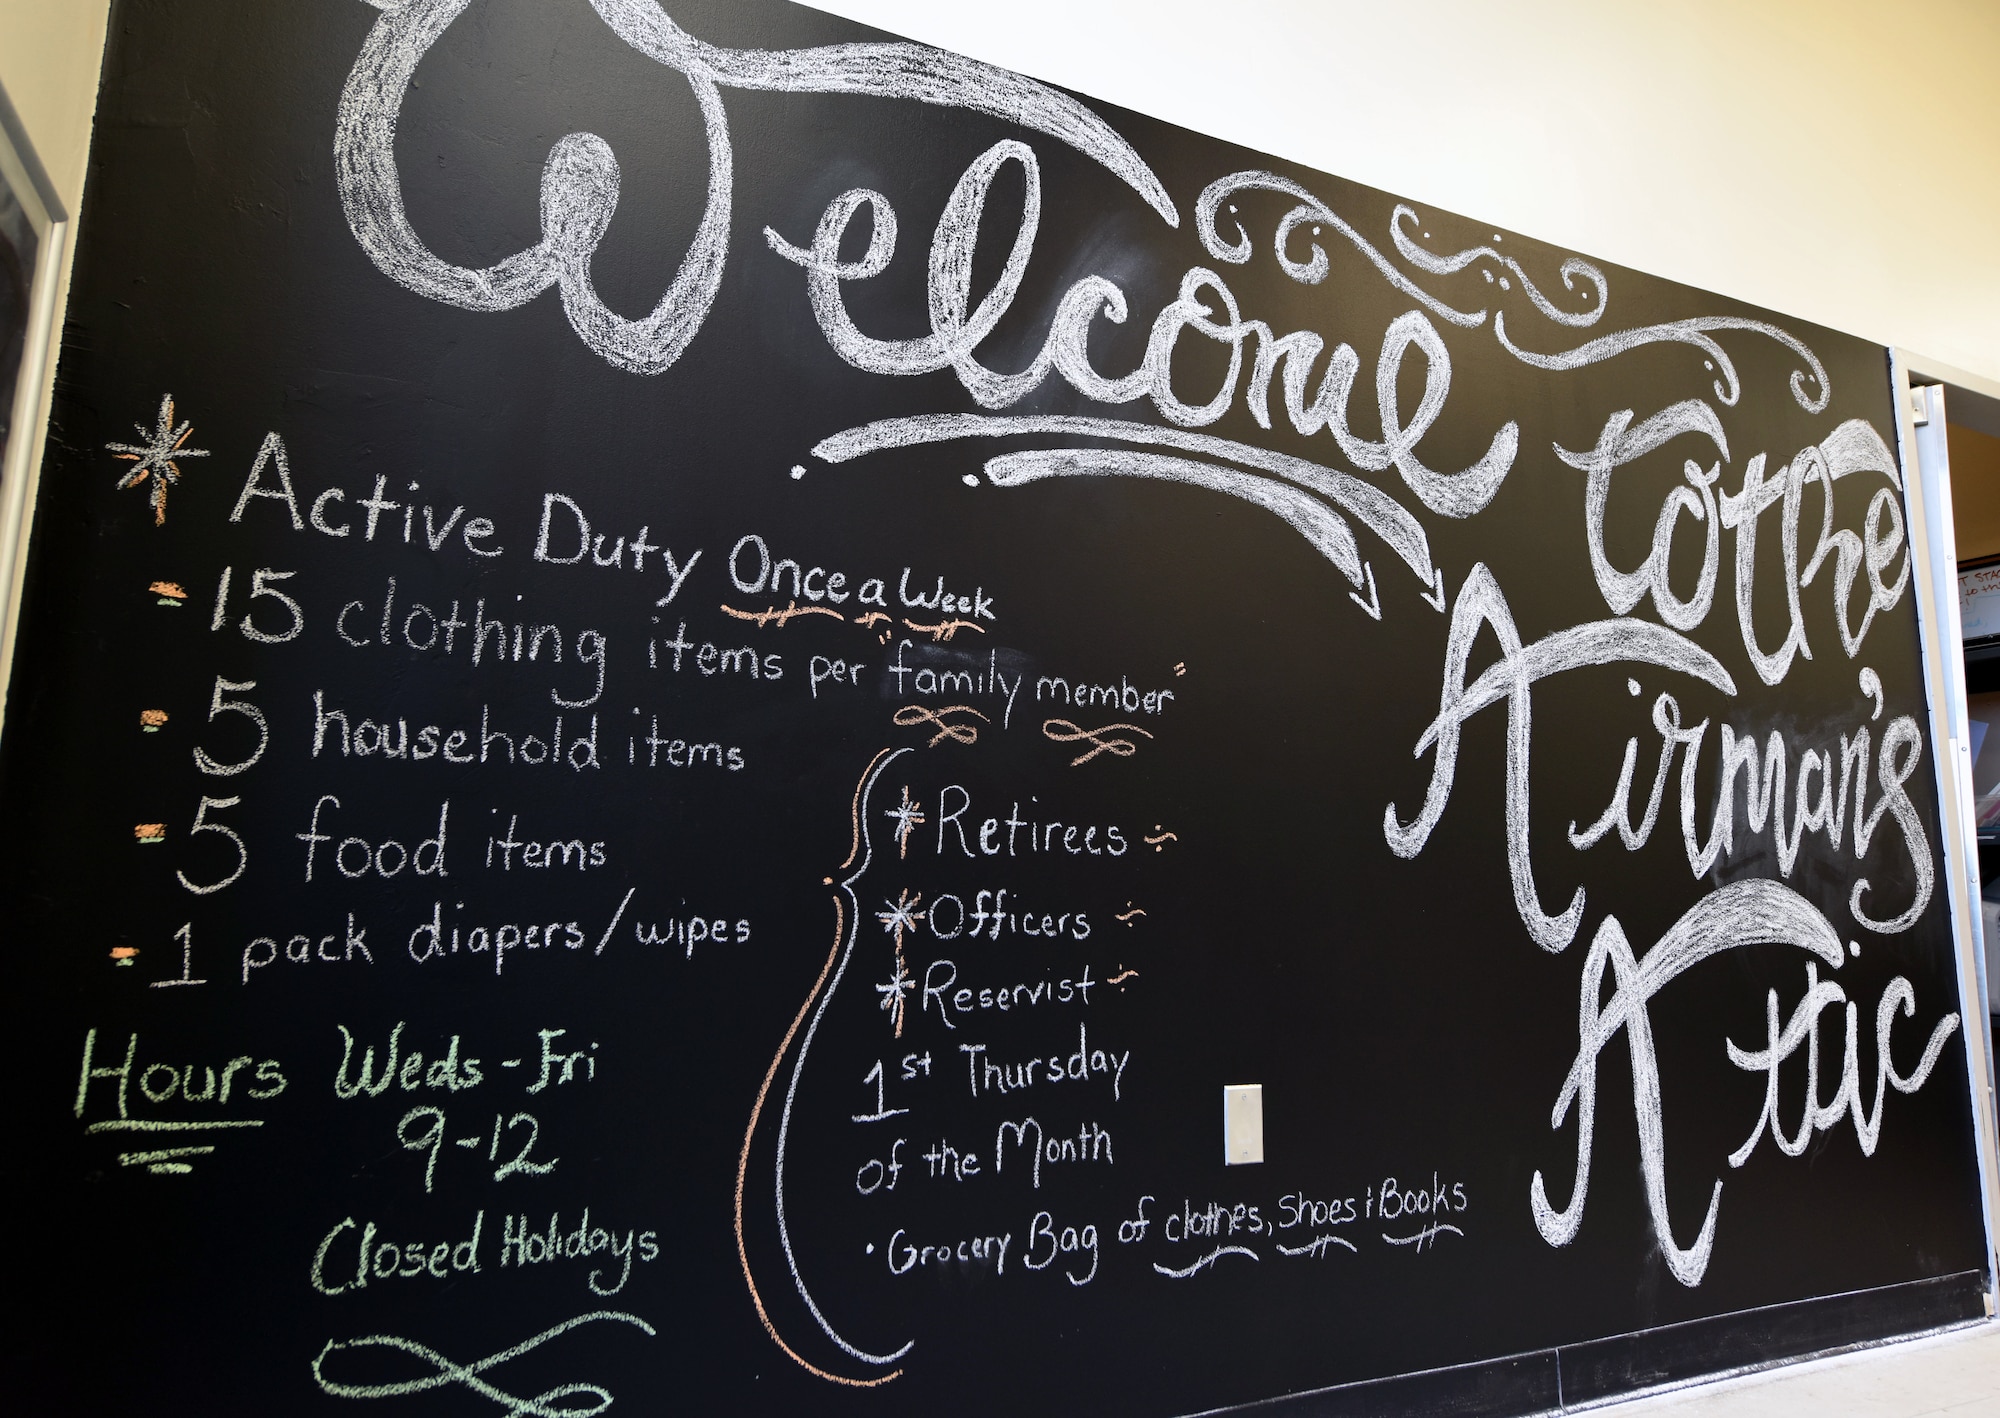 Welcome to the
Airman's
Attic
* Active Duty Once a Week
- 15 clothing items per "family member"
- 5 household items
- 5 food items
- 1 pack diapers/wipes
Hours Weds - Fri
9-12
Closed Holidays
* Retirees
* Officers
* Reservist
1st Thursday
of the Month
• Grocery Bag of clothes, Shoes & Books